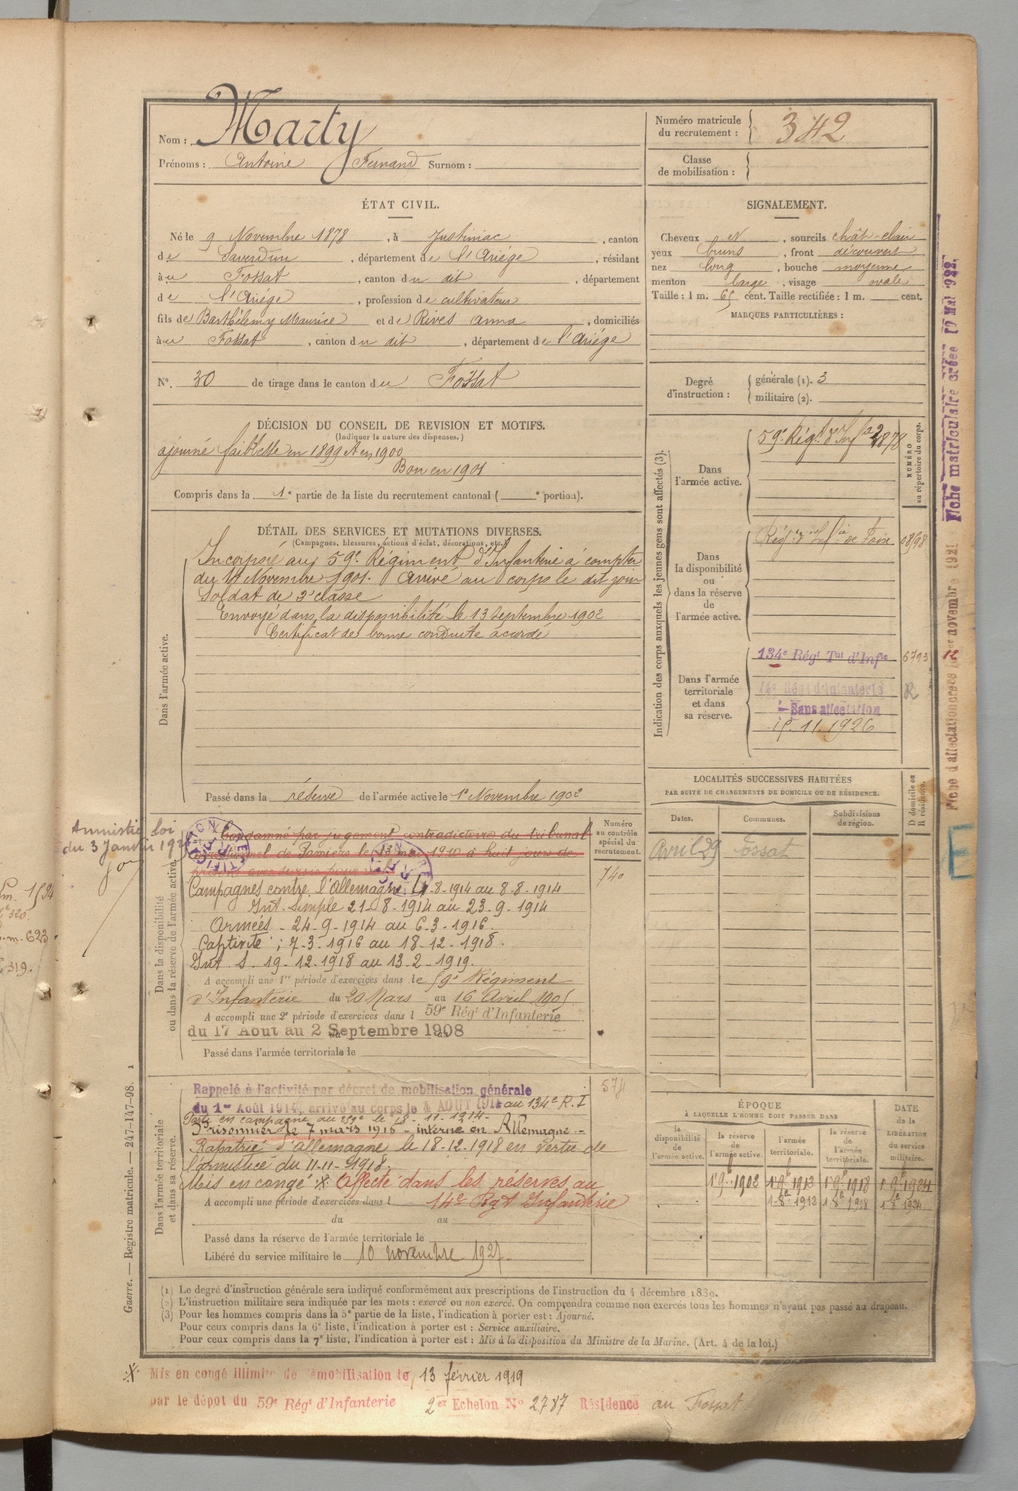 Nom : Marty
Prénoms : Antoine Fernand Surnom :
Numéro matricule du recrutement : 342
Classe de mobilisation :
ÉTAT CIVIL.
Né le 9 Novembre 1878, à Justiniac, canton
de Saverdun, département de l'Ariége, résidant
à au Fossat, canton du dit, département
de l'Ariége, profession de cultivateur
fils de Barthélemy Maurice et de Rives Anna, domiciliés
à au Fossat, canton du dit, département de l'Ariége
N°. 30 de tirage dans le canton du Fossat
SIGNALEMENT.
Cheveux et, sourcils chât-clair
yeux bruns, front découvert
nez long, bouche moyenne
menton large, visage ovale
Taille : 1 m. 65 cent. Taille rectifiée : 1 m. cent.
MARQUES PARTICULIÈRES :
Degré d'instruction : générale (1). 3
militaire (2).
DÉCISION DU CONSEIL DE REVISION ET MOTIFS.
(Indiquer la nature des dispenses.)
ajourné faiblesse en 1899 et en 1900
Bon en 1901
Compris dans la 1e partie de la liste du recrutement cantonal ( e portion).
DÉTAIL DES SERVICES ET MUTATIONS DIVERSES.
(Campagnes, blessures, actions d'éclat, décorations, etc.)
Dans l'armée active.
Incorporé au 59e Régiment d'Infanterie à compter
du 14 Novembre 1901. Arrivé au corps le dit jour
Soldat de 2e classe
Envoyé dans la disponibilité le 13 Septembre 1902
Certificat de bonne conduite accordé
Passé dans la réserve de l'armée active le 1r Novembre 1902
Indication des corps auxquels les jeunes gens sont affectés (3).
NUMÉRO au répertoire du corps.
Dans l'armée active.
59e Régt d'Infie 2878
Dans la disponibilité ou dans la réserve de l'armée active.
Régt d'Infie de Foix 0898
Dans l'armée territoriale et dans sa réserve.
134e Régt Tal d'Infie 5793
14e Régt d'Infanterie R
Sans affectation
15.11.1926
Fiche matriculaire créée 10 Mai 1922.
novembre 1921
E
LOCALITÉS SUCCESSIVES HABITÉES
PAR SUITE DE CHANGEMENTS DE DOMICILE OU DE RÉSIDENCE.
Dates. Communes. Subdivisions de région. D domicile ou R résidence.
Avril 29 Fossat
Amnistié loi
du 3 Janvier
Dans la disponibilité ou dans la réserve de l'armée active.
Numéro au contrôle spécial du recrutement.
740
Condamné par jugement contradictoire du tribunal
correctionnel de Pamiers le 13 mai 1910 à huit jours de
Campagnes contre l'Allemagne. 4-8-1914 au 8-8-1914
Int. Simple 21-8-1914 au 23-9-1914
Armées - 24-9-1914 au 6-3-1916.
Captivité ; 7-3-1916 au 18-12-1918.
Int S. 19-12-1918 au 13-2-1919.
A accompli une 1re période d'exercices dans le 59e Régiment
d'Infanterie du 20 Mars au 16 Avril 1905
A accompli une 2e période d'exercices dans l 59e Régt d'Infanterie
du 17 Aout au 2 Septembre 1908
Passé dans l'armée territoriale le
Dans l'armée territoriale et dans sa réserve.
Rappelé à l'activité par décret de mobilisation générale
du 1er Août 1914, arrivé au corps le 4 AOUT 1914 au 134e R.I
Prisonnier le 7 mars 1916 - interné en Allemagne -
Rapatrié d'Allemagne le 18-12-1918 en vertu de
l'armistice du 11-11-1918.
Mis en congé ※ Affecté dans les réserves au
A accompli une période d'exercices dans l 14e Rgt Infanterie
du au
Passé dans la réserve de l'armée territoriale le
Libéré du service militaire le 10 novembre 1927
ÉPOQUE
À LAQUELLE L'HOMME DOIT PASSER DANS
DATE DE LA LIBÉRATION DU SERVICE militaire.
la disponibilité de l'armée active. la réserve de l'armée active. l'armée territoriale. la réserve de l'armée territoriale.
1 9bre 1902 1 9bre 1913 1 9bre 1918 1 9bre 1924
Guerre. — Registre matricule. — 247-147-98.
(1) Le degré d'instruction générale sera indiqué conformément aux prescriptions de l'instruction du 4 décembre 1889.
(2) L'instruction militaire sera indiquée par les mots : exercé ou non exercé. On comprendra comme non exercés tous les hommes n'ayant pas passé au drapeau.
(3) Pour les hommes compris dans la 5e partie de la liste, l'indication à porter est : Ajourné.
Pour ceux compris dans la 6e liste, l'indication à porter est : Service auxiliaire.
Pour ceux compris dans la 7e liste, l'indication à porter est : Mis à la disposition du Ministre de la Marine. (Art. 4 de la loi.)
※ Mis en congé illimité de démobilisation le 13 février 1919
par le dépôt du 59e Régt d'Infanterie 2er Echelon N° 2787 Résidence au Fossat